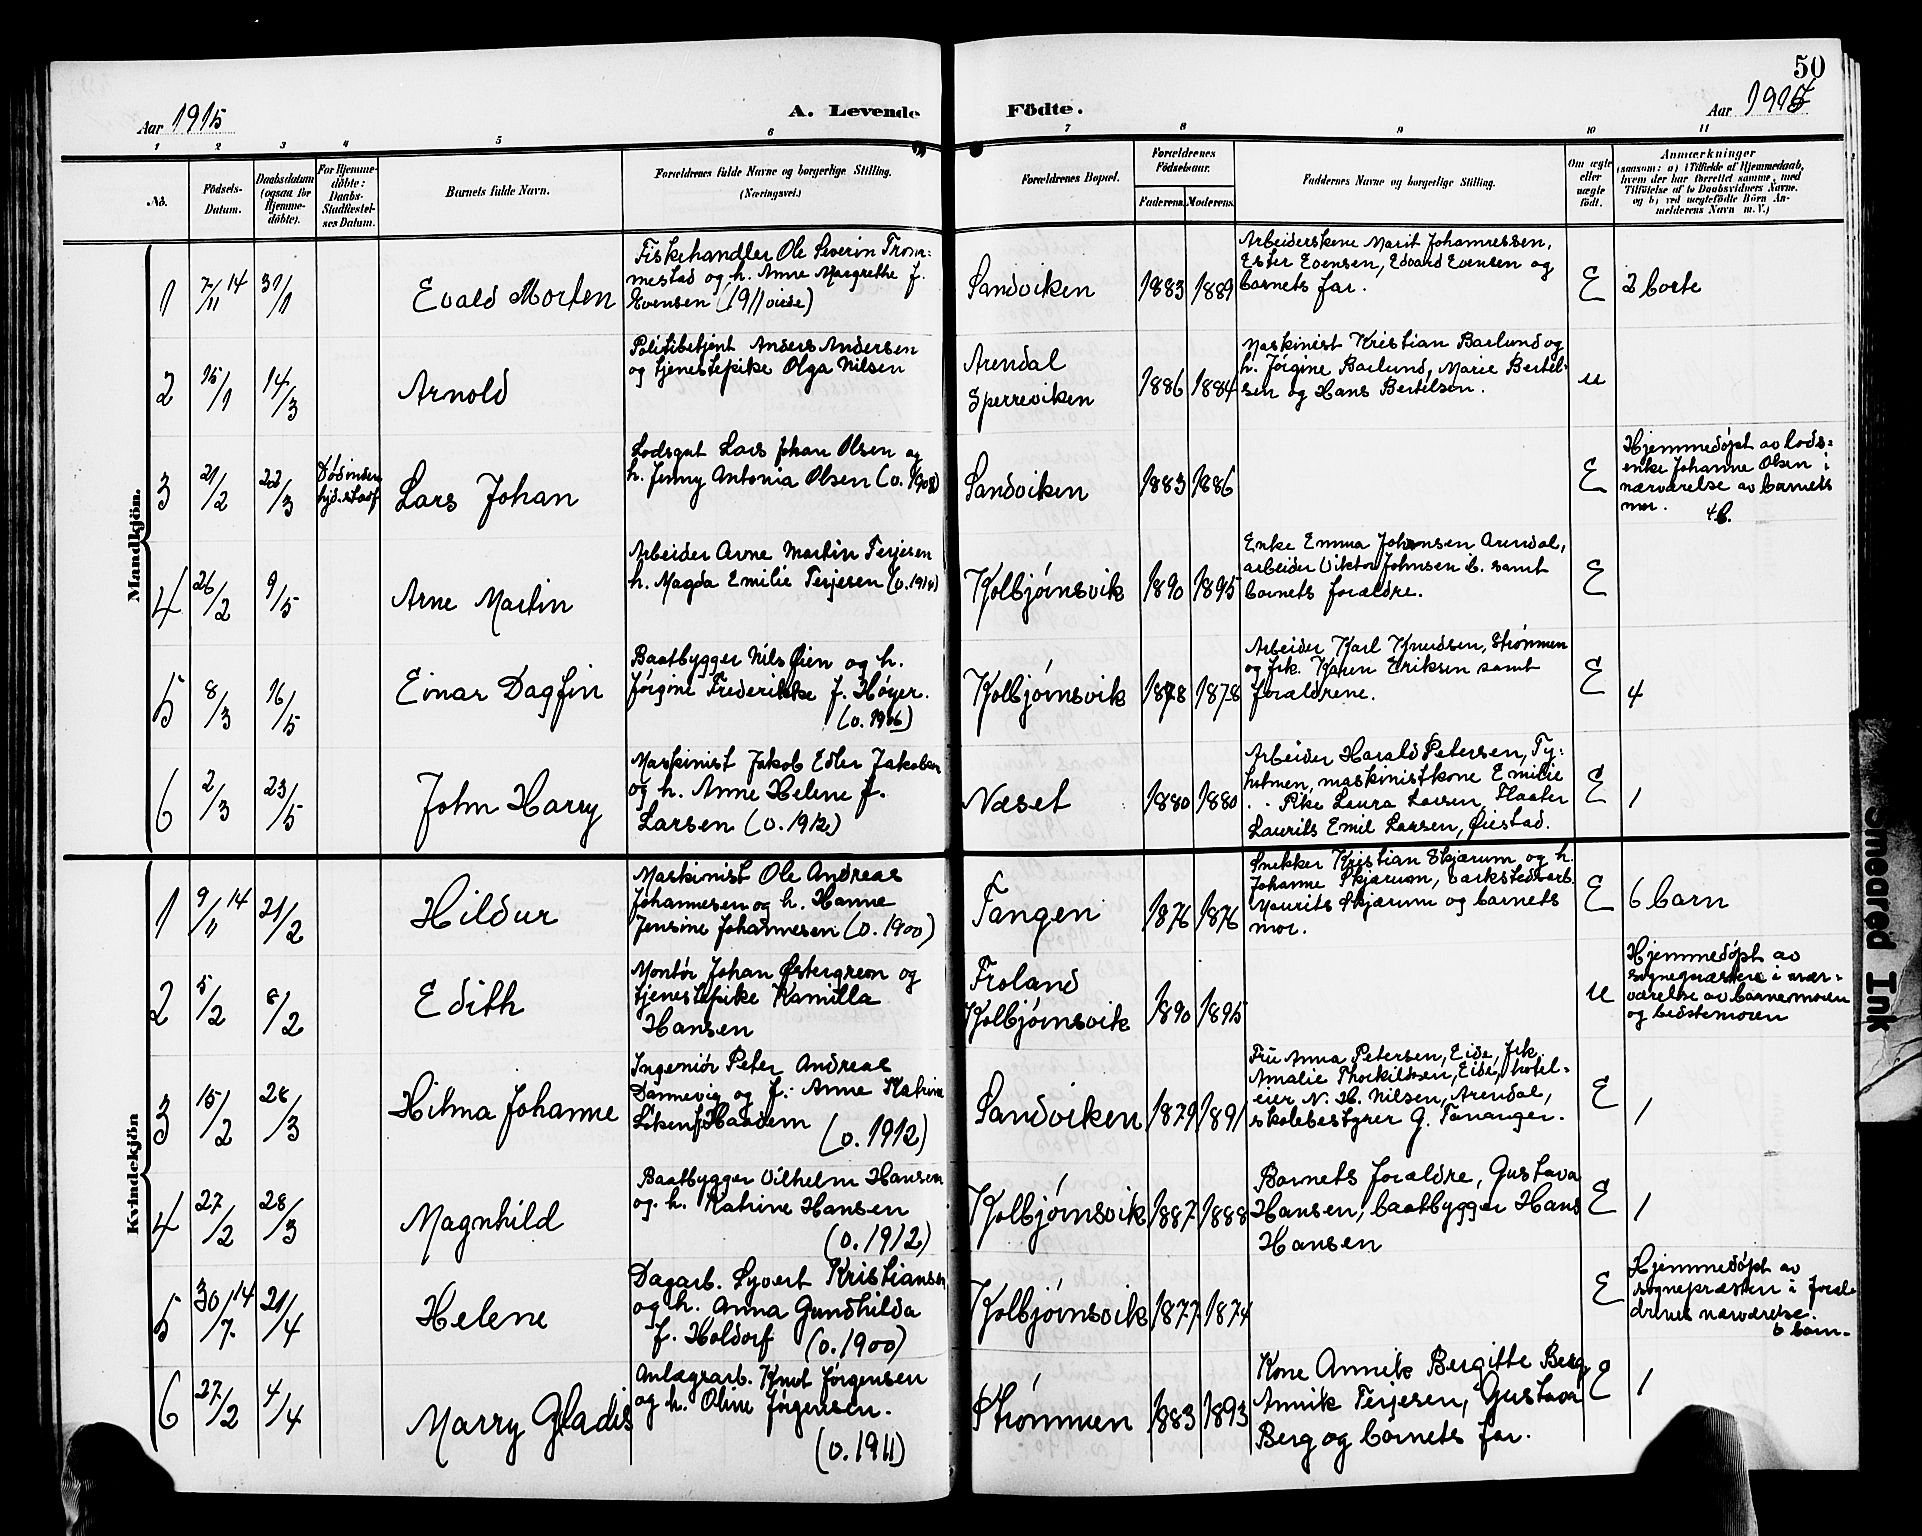 50
Aar 1915
A. Levende
Födte.
Aar 1915
1 2 3 4 5 6 7 8 9 10 11
No.
Födsels-
Datum.
Daabsdatum
(ogsaa for
Hjemme-
döbte).
For Hjemme-
döbte:
Daabs-
Stadfæstel-
ses Datum.
Barnets fulde Navn.
Forældrenes fulde Navne og borgerlige Stilling.
(Næringsvei.)
Forældrenes Bopæl.
Forældrenes
Födselsaar.
Faderens. Moderens.
Faddernes Navne og borgerlige Stilling.
Om ægte
eller
uægte
födt.
Anmærkninger
(saasom: a) i Tilfælde af Hjemmedaab,
hvem der har forrettet samme, med
Tilföielse af to Daabsvidners Navne.
og b) ved uægtefödte Börn An-
melderens Navn m. V.)
Mandkjön.
1
7/11 14
31/1
Evald Morten
Fiskehandler Ole Severin Trom-
mestad og h. Anne Margrethe f.
Evensen (1911 viede)
Sandviken
1883 1889
Arbeiderskene Marit Johannessen,
Ester Evensen, Edvard Evensen og
barnets far.
E
2 borte
2
15/1
14/3
Arnold
Politibetjent Anders Andersen
og tjenestepike Olga Nilsen
Arendal
Sperreviken
1886 1884
Maskinist Kristian Baslund og
h. Jörgine Baslund, Marie Bertel-
sen og Hans Bertelsen.
u
3
21/2
22/3
Död inden
hjd. stadf
Lars Johan
Lodsgut Lars Johan Olsen og
h. Jenny Antonia Olsen (v. 1908)
Sandviken
1883 1886
E
Hjemmedøpt av lods-
enke Johanne Olsen i
nærværelse av barnets
mor. 4 b.
4
26/2
9/5
Arne Martin
Arbeider Arne Martin Terjesen
h. Magda Emilie Terjesen (v. 1914)
Kolbjørnsvik
1890 1895
Enke Emma Johnsen Arendal,
arbeider Viktor Johnsen ib. samt
barnets forældre.
E
5
8/3
16/5
Einar Dagfin
Baatbygger Nils Øien og h.
Jørgine Frederikke f. Høyer.
(v. 1906)
Kolbjørnsvik
1878 1878
Arbeider Karl Knudsen, Strømmen
og frk. Karen Eriksen samt
forældrene.
E
4
6
2/3
23/5
John Harry
Maskinist Jakob Edler Jakobsen
og h. Anne Helene f.
Larsen (v. 1912)
Næset
1880 1880
Arbeider Harald Petersen, Ty-
holmen, maskinistkone Emilie
Pike Laura Larsen, Flaaten
Laurits Emil Larsen, Øiestad.
E
1
Kvindekjön
1
9/11 14
21/2
Hildur
Maskinist Ole Andreas
Johannesen og h. Hanne
Jensine Johannesen (v. 1900)
Tangen
1876 1876
Snekker Kristian Skjærum og h.
Johanne Skjærum, værkstedsarb.
Maurits Skjærum og barnets
mor.
E
6 barn
2
5/2
8/2
Edith
Montør Johan Østergreen og
tjenestepike Kamilla
Hansen
Froland
Kolbjørnsvik
1890 1895
u
Hjemmedøpt av
sognepræsten i nær-
værelse av barnemoren
og bedstemoren
3
15/2
28/3
Hilma Johanne
Ingeniør Peter Andreas
Dannevig og f: Anne Katrine
Løken f. Haadem (v. 1912)
Sandviken
1879 1891
Fru Anna Petersen, Eide, frk.
Amalie Thorkildsen, Eide, hotel-
eier N. H. Nilsen, Arendal,
skolebestyrer G. Tananger.
E
1
4
27/2
28/3
Magnhild
Baatbygger Vilhelm Hansen
og h. Katrine Hansen
(v. 1912)
Kolbjørnsvik
1887 1888
Barnets forældre, Gustava
Hansen, baatbygger Hans
Hansen
E
1
5
30/7 14
21/4
Helene
Dagarb. Syvert Kristiansen
og h. Anna Gundhilda
f. Holdorf (v. 1900)
Kolbjørnsvik
1877 1874
E
Hjemmedøpt av
sognepræsten i foræl-
drenes nærværelse.
6 barn.
6
27/2
4/4
Marry Gladis
Anlægsarb. Knut Jørgensen
og h. Oline Jørgensen.
(v. 1911)
Strømmen
1883 1893
Kone Annik Bergitte Berg,
Annik Terjesen, Gustava
Berg og barnets far.
E
1
Smeared Ink